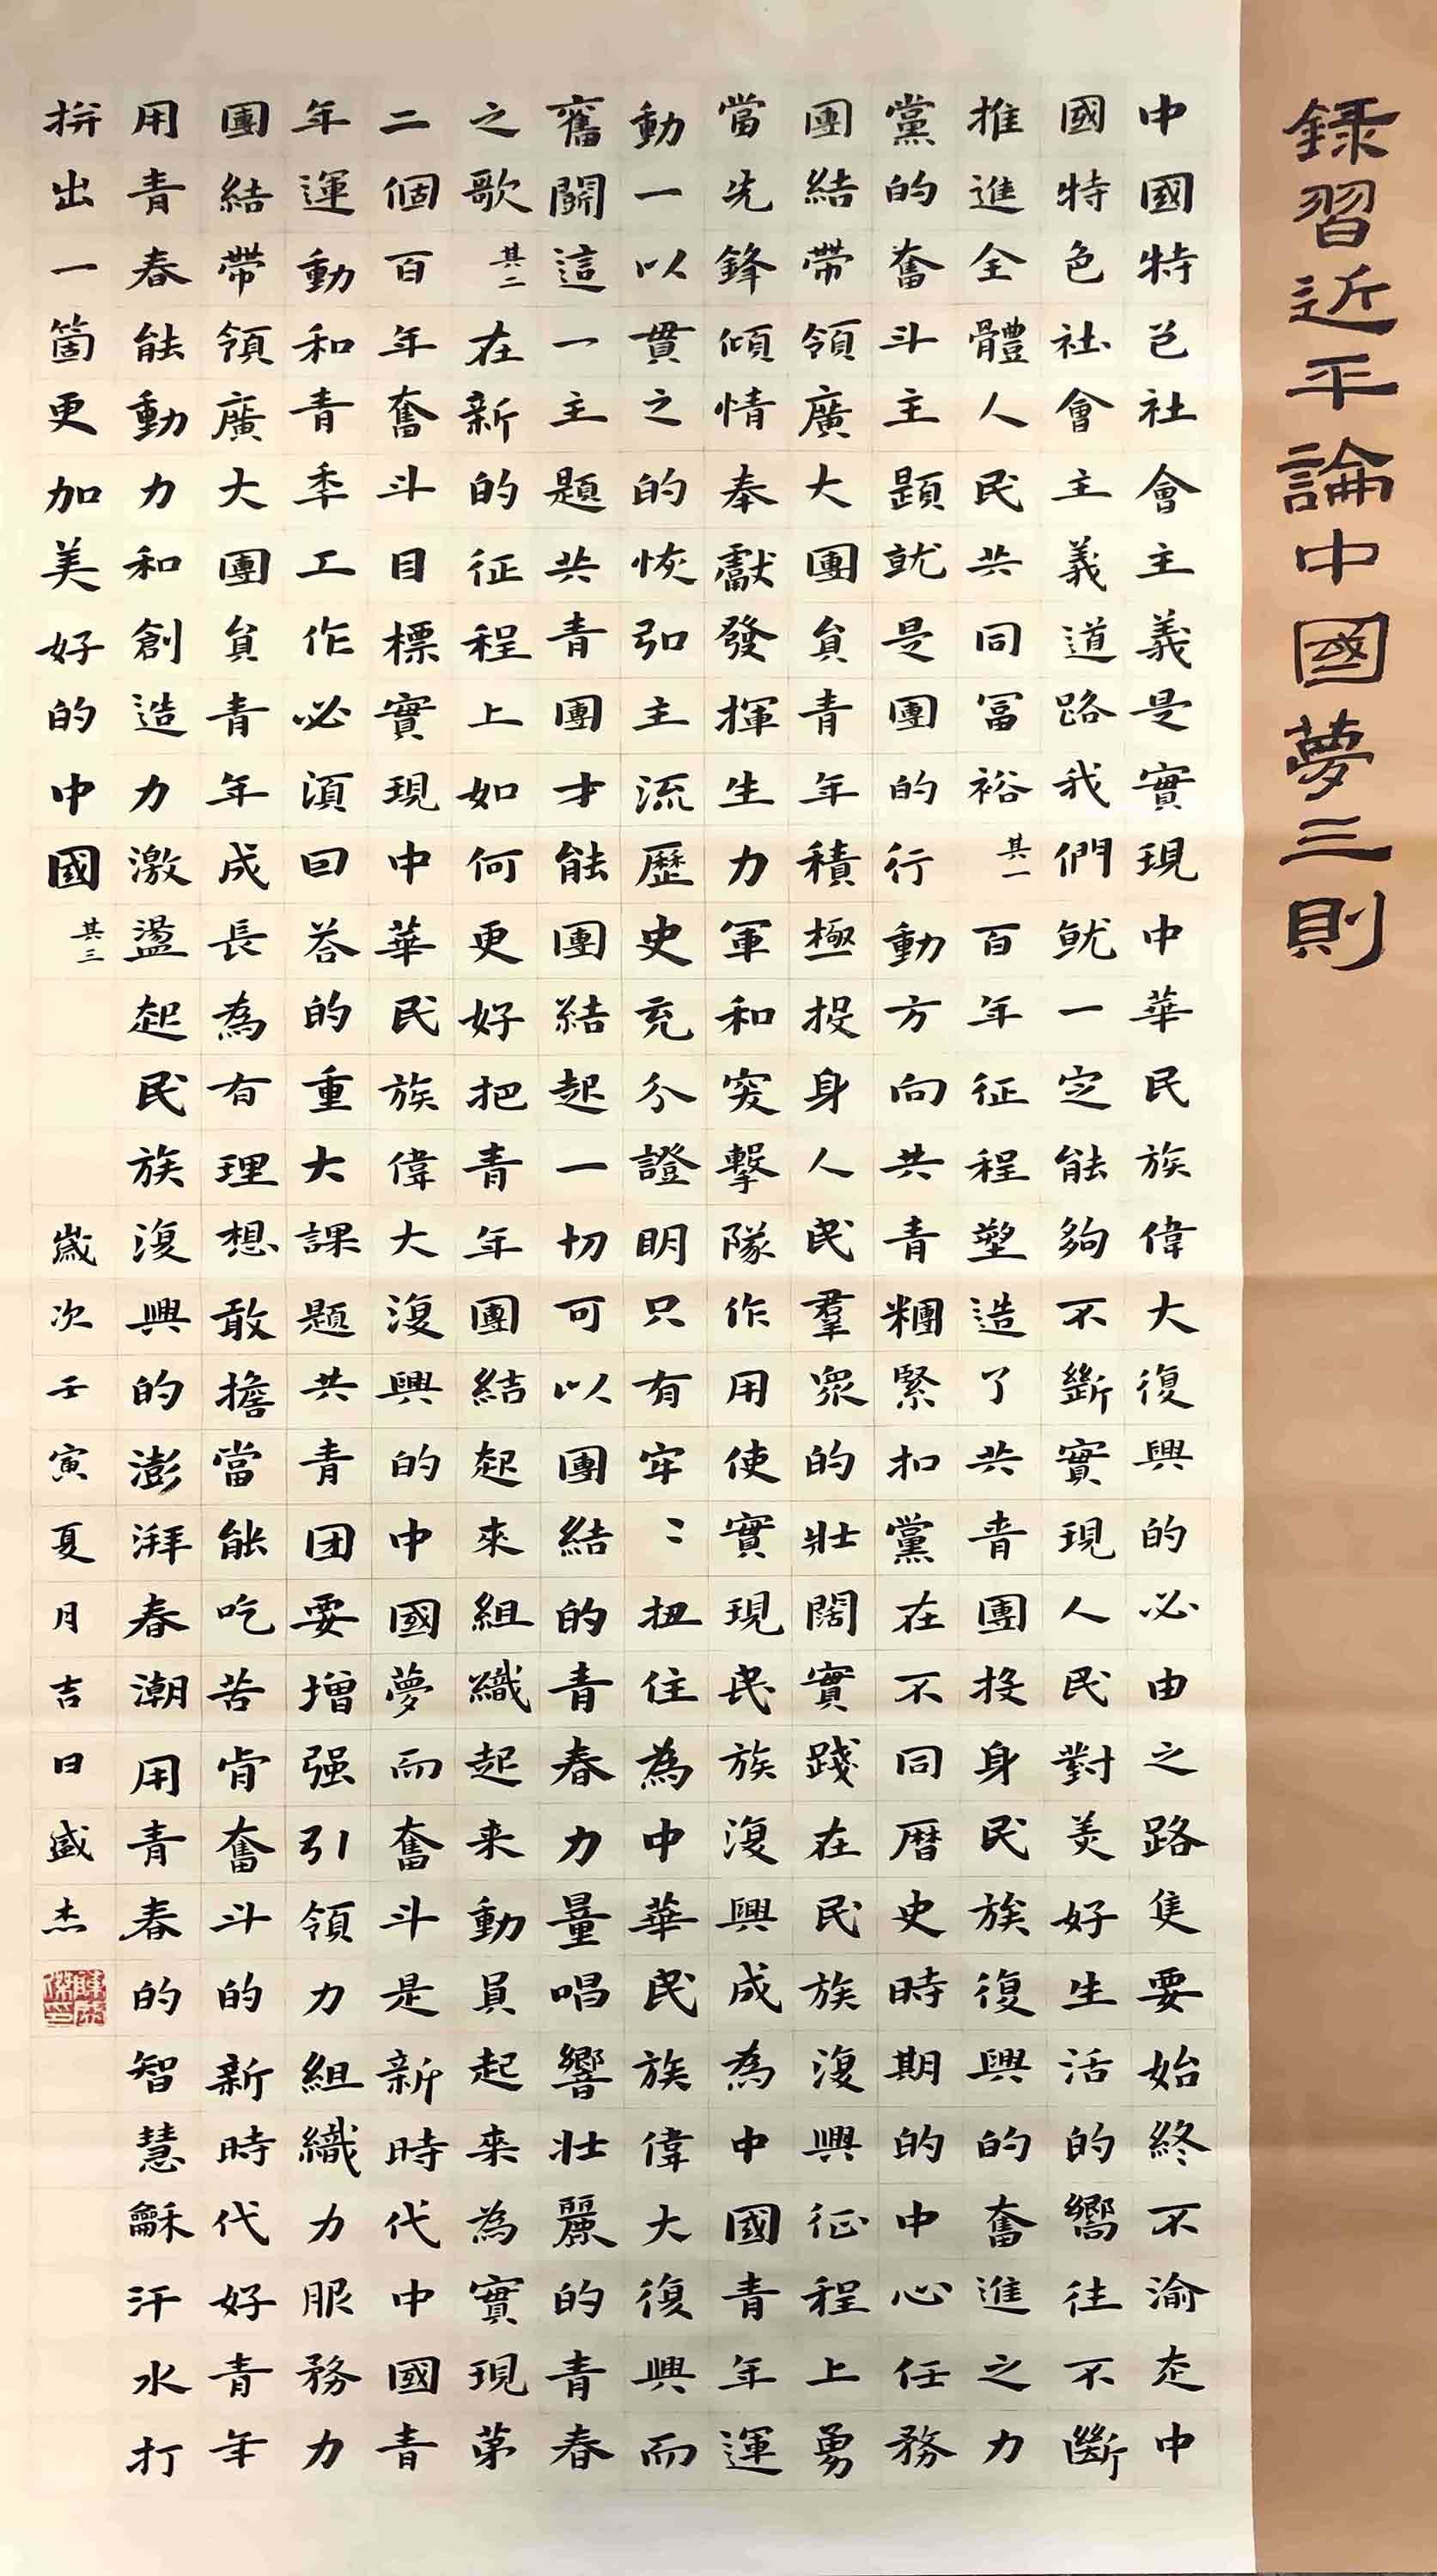 録習近平論中國夢三則
中國特色社會主義是實現中華民族偉大復興的必由之路隻要始終不渝走中
國特色社會主義道路我們就一定能夠不斷實現人民對美好生活的嚮往不斷
推進全體人民共同富裕其一百年征程塑造了共青團投身民族復興的奮進之力
黨的奮斗主題就是團的行動方向共青團緊扣黨在不同曆史時期的中心任務
團結帶領廣大團員青年積極投身人民羣眾的壯闊實踐在民族復興征程上勇
當先鋒傾情奉獻發揮生力軍和突擊隊作用實現民族復興成為中國青年運
動一以貫之的恢弘主流歷史充分證明只有牢〻扭住為中華民族偉大復興而
奮鬬這一主題共青團才能團結起一切可以團結的青春力量唱響壯麗的青春
之歌其二在新的征程上如何更好把青年團結起來組織起来動員起来為實現第
二個百年奮斗目標實現中華民族偉大復興的中國夢而奮斗是新時代中國青
年運動和青年工作必須回答的重大課題共青团要增强引領力組織力服務力
團結帶領廣大團員青年成長為有理想敢擔當能吃苦肯奮斗的新時代好青年
用青春能動力和創造力激盪起民族復興的澎湃春潮用青春的智慧龢汗水打
拼出一箇更加美好的中國其三
歲次壬寅夏月吉日盛杰